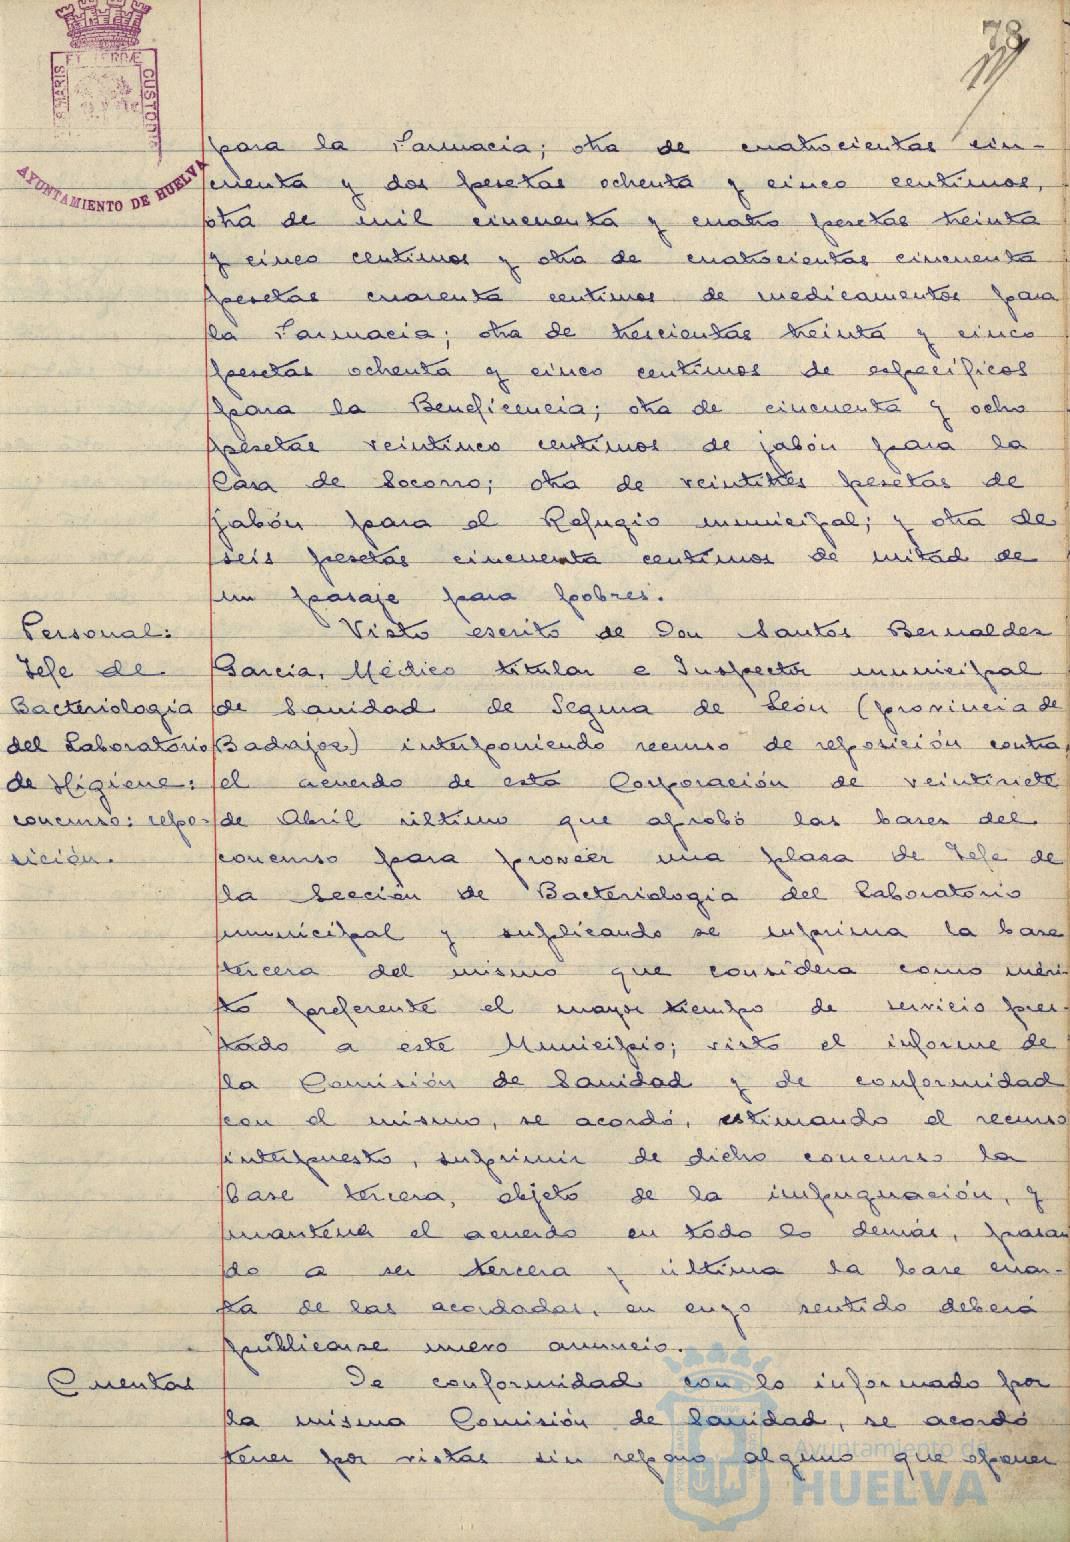 78
AYUNTAMIENTO DE HUELVA
para la Farmacia; otra de cuatrocientas cin-
cuenta y dos pesetas ochenta y cinco centimos,
otra de mil cincuenta y cuatro pesetas treinta
y cinco centimos y otra de cuatrocientas cincuenta
pesetas cuarenta centimos de medicamentos para
la Farmacia; otra de trescientas treinta y cinco
pesetas ochenta y cinco centimos de especificos
para la Beneficencia; otra de cincuenta y ocho
pesetas veinticinco centimos de jabón para la
Casa de Socorro; otra de veintitres pesetas de
jabón para el Refugio municipal; y otra de
seis pesetas cincuenta centimos de mitad de
un pasaje para pobres.
Personal:
Jefe de
Bacteriologia
del Laboratorio
de Higiene:
concurso: repo-
sición.
Visto escrito de Don Santos Bernaldez
Garcia, Médico titular e Inspector municipal
de Sanidad de Segura de León (provincia de
Badajoz) interponiendo recurso de reposición contra
el acuerdo de esta Corporación de veintisiete
de Abril último que aprobó las bases del
concurso para proveer una plaza de Jefe de
la Sección de Bacteriologia del Laboratorio
municipal y suplicando se suprima la base
tercera del mismo que considera como méri-
to preferente el mayor tiempo de servicio pres-
tado a este Municipio; visto el informe de
la Comisión de Sanidad y de conformidad
con el mismo, se acordó, estimando el recurso
interpuesto, suprimir de dicho concurso la
base tercera, objeto de la impugnación, y
mantener el acuerdo en todo lo demás, pasan
do a ser tercera y última la base cuar-
ta de las acordadas, en cuyo sentido deberá
públicarse nuevo anuncio.
Cuentas
De conformidad con lo informado por
la misma Comisión de Sanidad, se acordó
tener por vistas sin reparo alguno que oponer
Ayuntamiento de
HUELVA